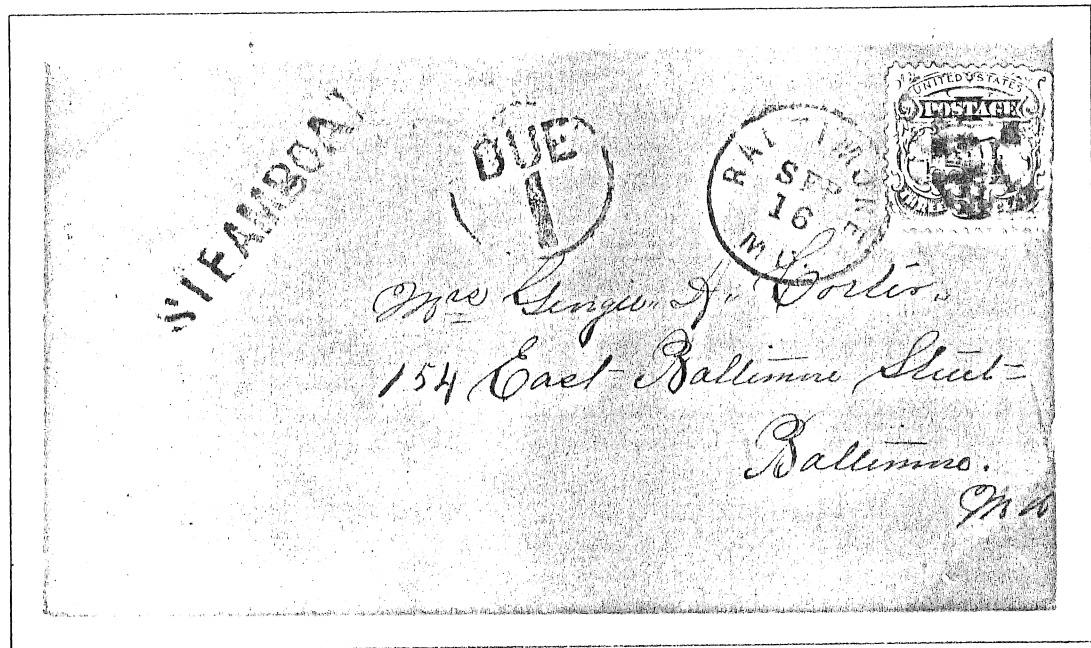 STEAMBOAT
DUE
1
BALTIMORE
SEP
16
MD.
UNITED STATES
POSTAGE
THREE
Mrs Georgie A.
154 East Baltimore Street
Baltimore.
Md